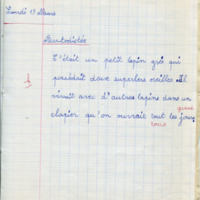 Lundi 17 Mars
Autodictée
C'était un petit lapin gris qui
possédait deux superbes oreilles. Il
vivait avec d'autres lapins dans un
clapier qu'on ouvrait tout les jours
tous